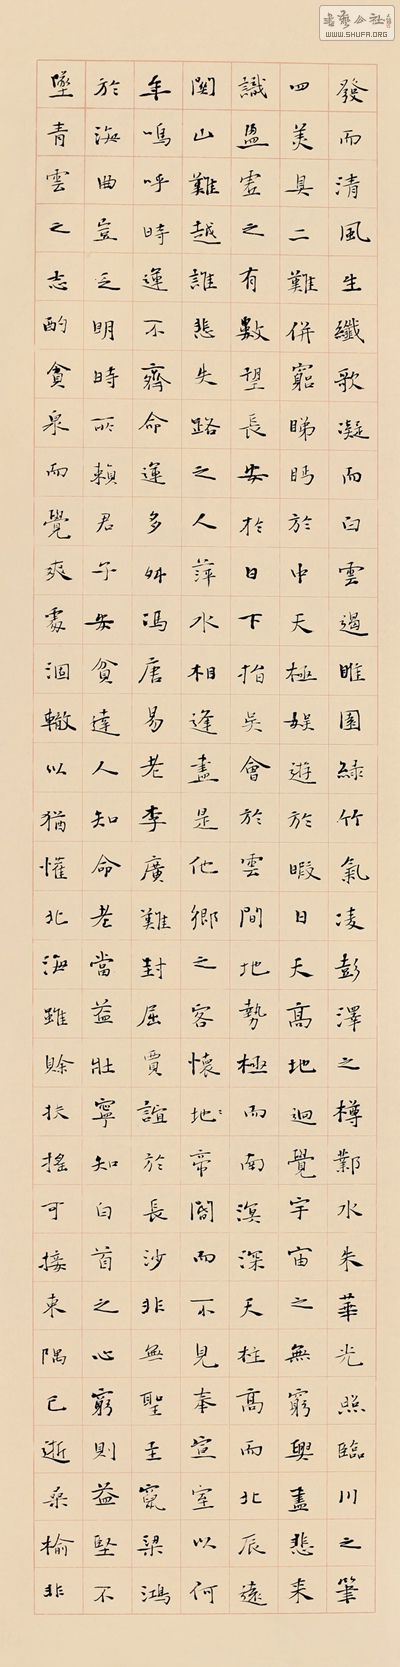 書藝公社
WWW.SHUFA.ORG
發而清風生纖歌凝而白雲遏睢園綠竹氣凌彭澤之樽鄴水朱華光照臨川之筆
四美具二難併窮睇眄於中天極娛遊於暇日天高地迥覺宇宙之無窮興盡悲來
識盈虛之有數望長安於日下指吳會於雲間地勢極而南溟深天柱高而北辰遠
關山難越誰悲失路之人萍水相逢盡是他鄉之客懷地帝閽而不見奉宣室以何
年嗚呼時運不齊命運多舛馮唐易老李廣難封屈賈誼於長沙非無聖主竄梁鴻
於海曲豈乏明時所賴君子安貧達人知命老當益壯寧知白首之心窮則益堅不
墜青雲之志酌貪泉而覺爽處涸轍以猶懽北海雖賒扶搖可接東隅已逝桑榆非